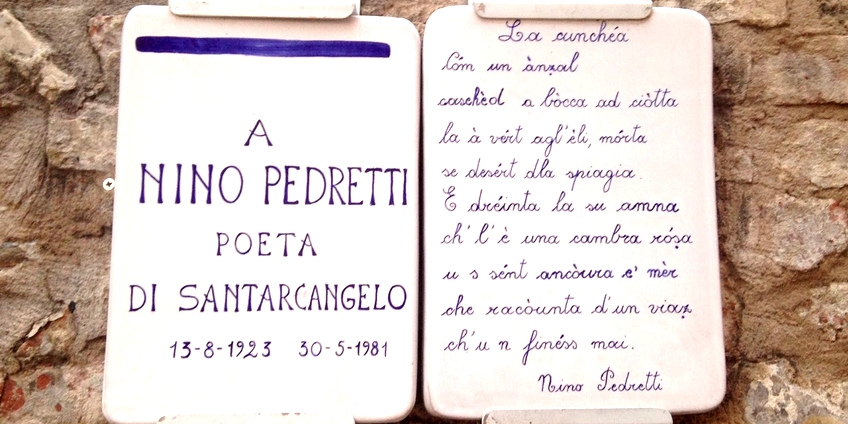 A
NINO PEDRETTI
POETA
DI SANTARCANGELO
13-8-1923 30-5-1981
La cunchéa
Cóm un ànzal
caschèd a bòcca ad ciòtta
la à vért agl'éli, mórta
se desért dla spiagia.
E dréinta la su amna
ch' l' è una cambra rósa
u s sént ancòura e' mèr
che racòunta d'un viaz
ch'u n finéss mai.
Nino Pedretti